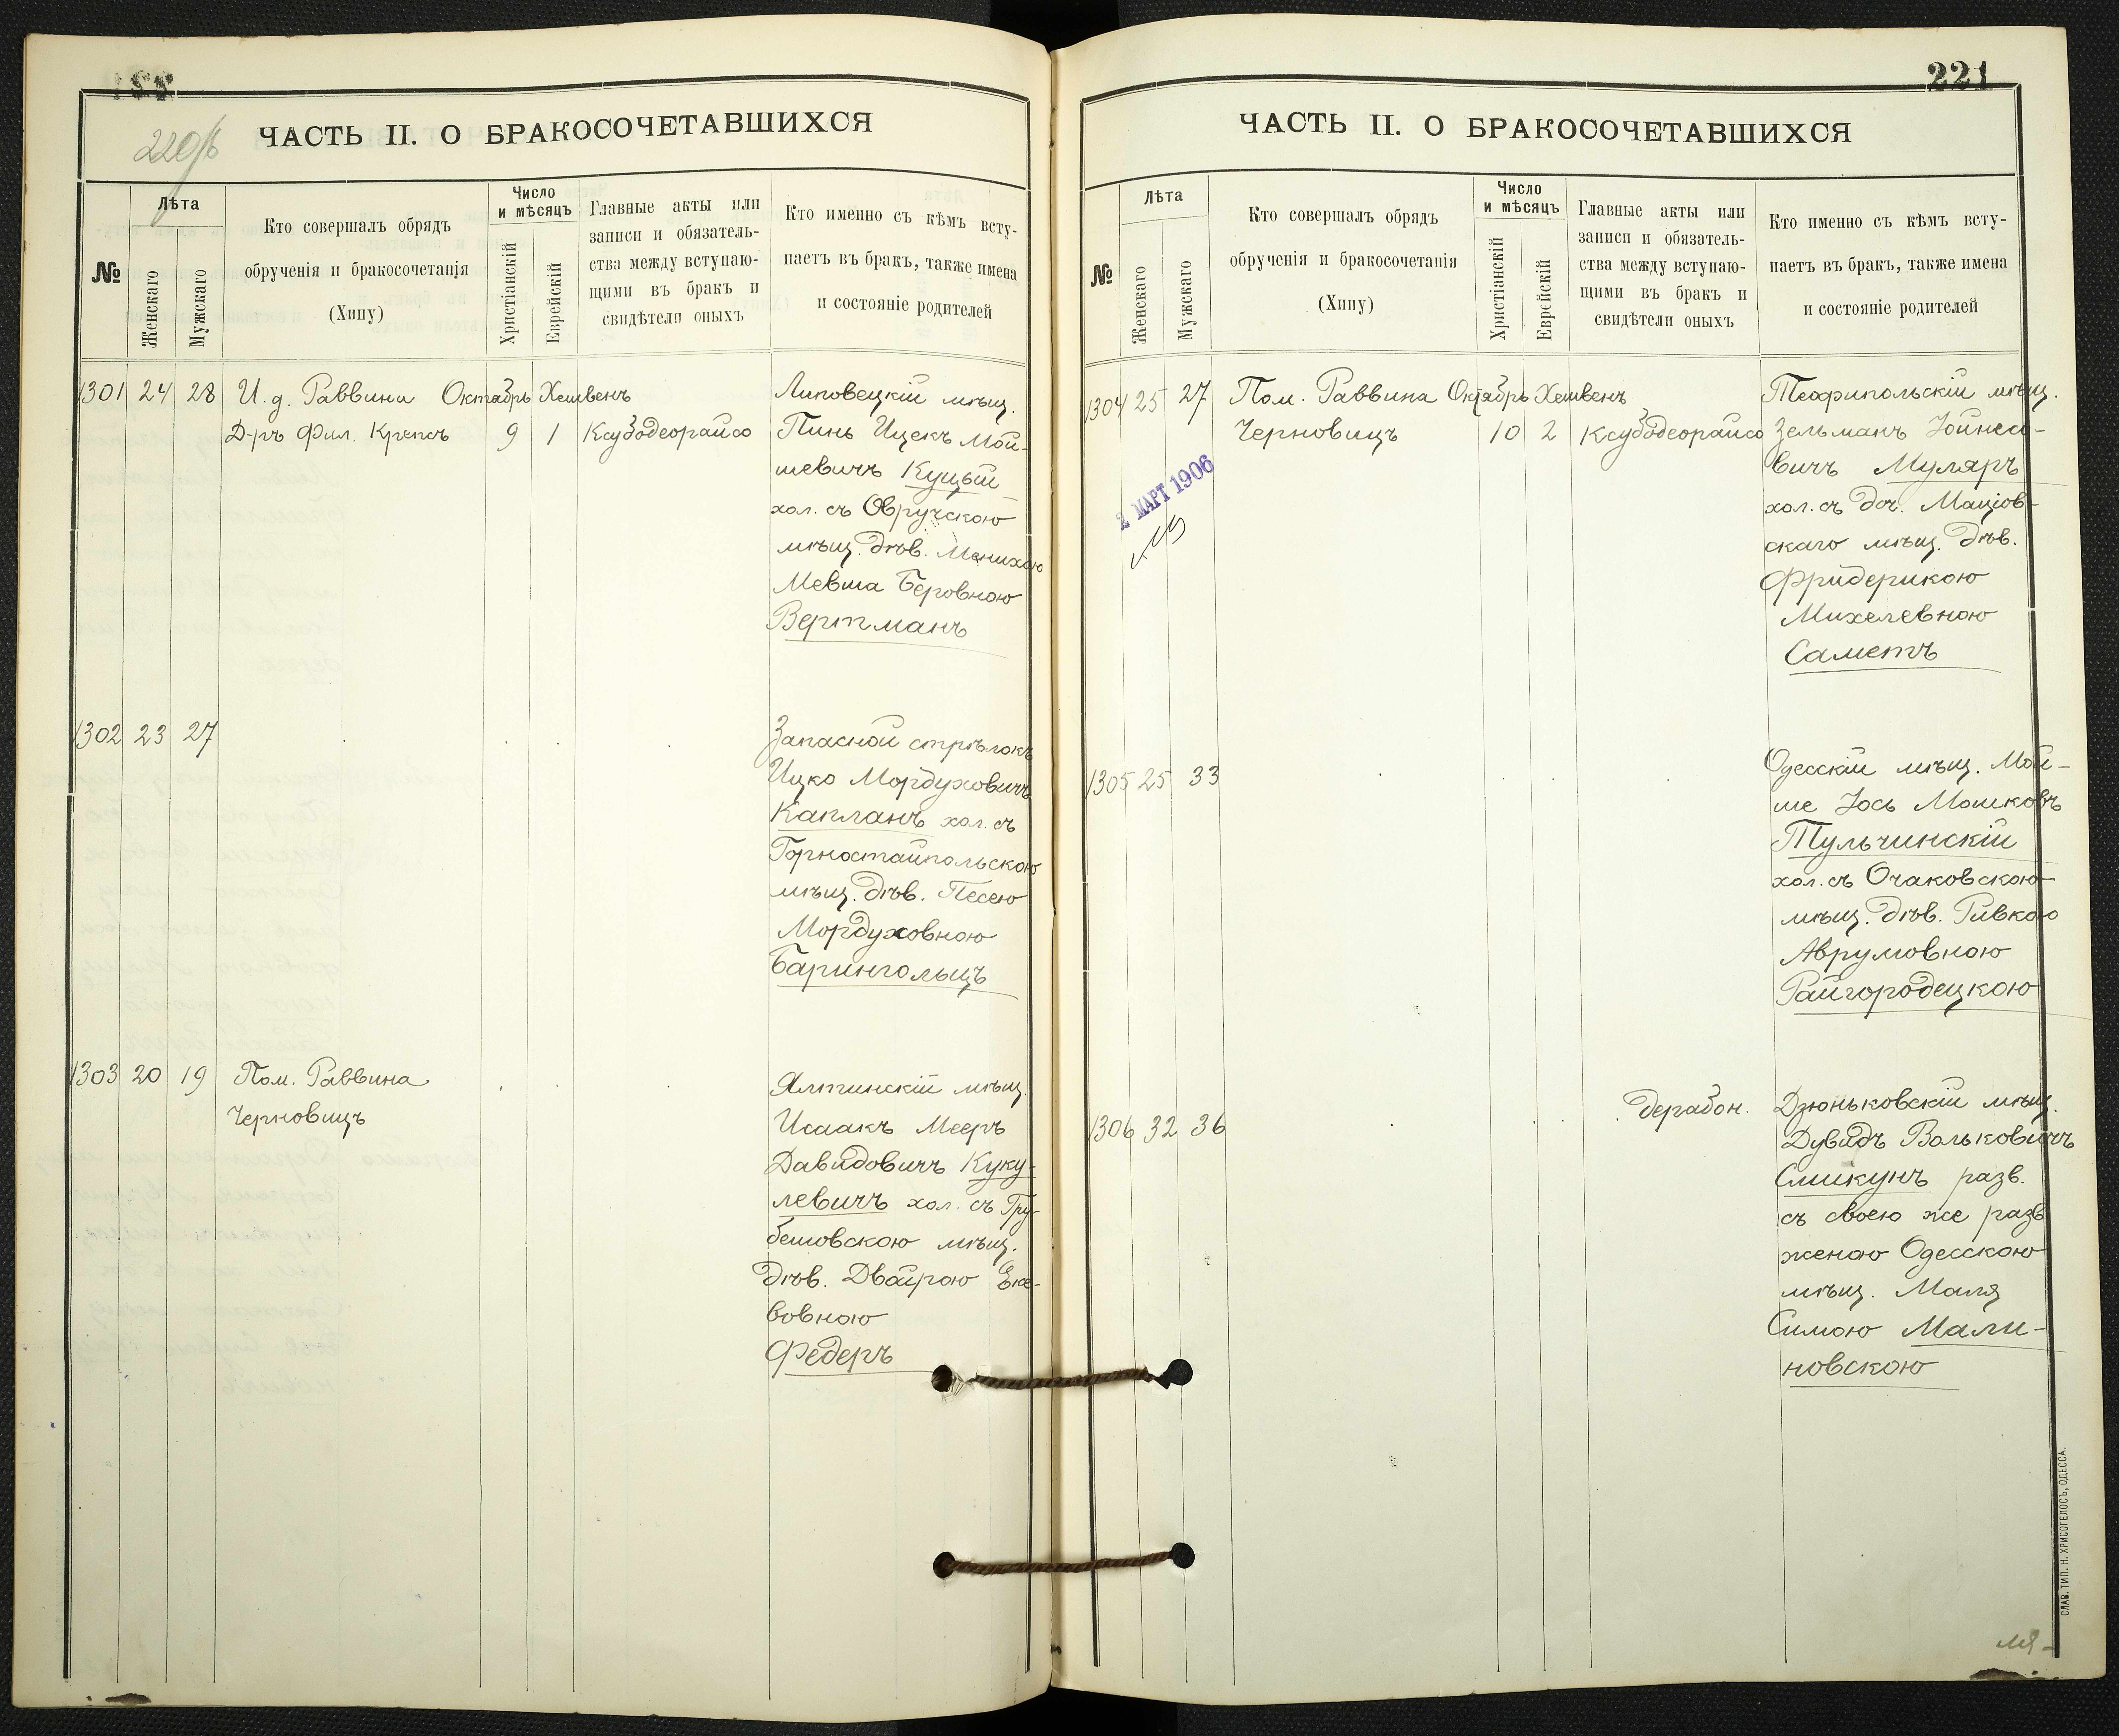 220/б
ЧАСТЬ II. О БРАКОСОЧЕТАВШИХСЯ
№
Лѣта
Женскаго
Мужскаго
Кто совершалъ обрядъ
обрученія и бракосочетанія
(Хипу)
Число
и мѣсяцъ
Христіанскій
Еврейскій
Главные акты или
записи и обязатель-
ства между вступаю-
щими въ бракъ и
свидѣтели оныхъ
Кто именно съ кѣмъ всту-
паетъ въ бракъ, также имена
и состояніе родителей
1301 24 28 И. д. Раввина Октябрь Хешвенъ
Д-ръ Фил. Крепсъ 9 1 Ксубодеорайсо
Липовецкій мѣщ.
Пинь Ицекъ Мой-
шевичъ Куцый
хол. съ Овручскою
мѣщ. дѣв. Менихою
Мевша Беровною
Вертманъ
1302 23 27
Запасной стрѣлокъ
Ицко Мордуховичъ
Капланъ хол. съ
Горностайпольскою
мѣщ. дѣв. Песею
Мордуховною
Барингольцъ
1303 20 19 Пом. Раввина
Черновицъ
Ялтинскій мѣщ.
Исаакъ Мееръ
Давидовичъ Куку-
левичъ хол. съ Гру-
бешовскою мѣщ.
дѣв. Двойрою Еке-
вовною
Федеръ
221
ЧАСТЬ II. О БРАКОСОЧЕТАВШИХСЯ
№
Лѣта
Женскаго
Мужскаго
Кто совершалъ обрядъ
обрученія и бракосочетанія
(Хипу)
Число
и мѣсяцъ
Христіанскій
Еврейскій
Главные акты или
записи и обязатель-
ства между вступаю-
щими въ бракъ и
свидѣтели оныхъ
Кто именно съ кѣмъ всту-
паетъ въ бракъ, также имена
и состояніе родителей
1304 25 27 Пом. Раввина Октябрь Хешвенъ
Черновицъ 10 2 Ксубодеорайсо
2 МАРТ 1906
Теофипольскій мѣщ.
Зельманъ Іойнесо-
вичъ Муляръ
хол. съ доч. Маціов-
скаго мѣщ. дѣв.
Фридерикою
Михелевною
Саметъ
1305 25 33
Одесскій мѣщ. Мой-
ше Іось Мошковъ
Тульчинскій
хол. съ Очаковскою
мѣщ. дѣв. Ривкою
Аврумовною
Райгородецкою
1306 32 36 дерабон.
Дзюньковскій мѣщ.
Дувидъ Вольковичъ
Сликунъ разв.
съ своею же разв
женою Одесскою
мѣщ. Маля
Симою Мали-
новскою
СЛАВ. ТИП. Н. ХРИСОГЕЛОСЪ, ОДЕССА.